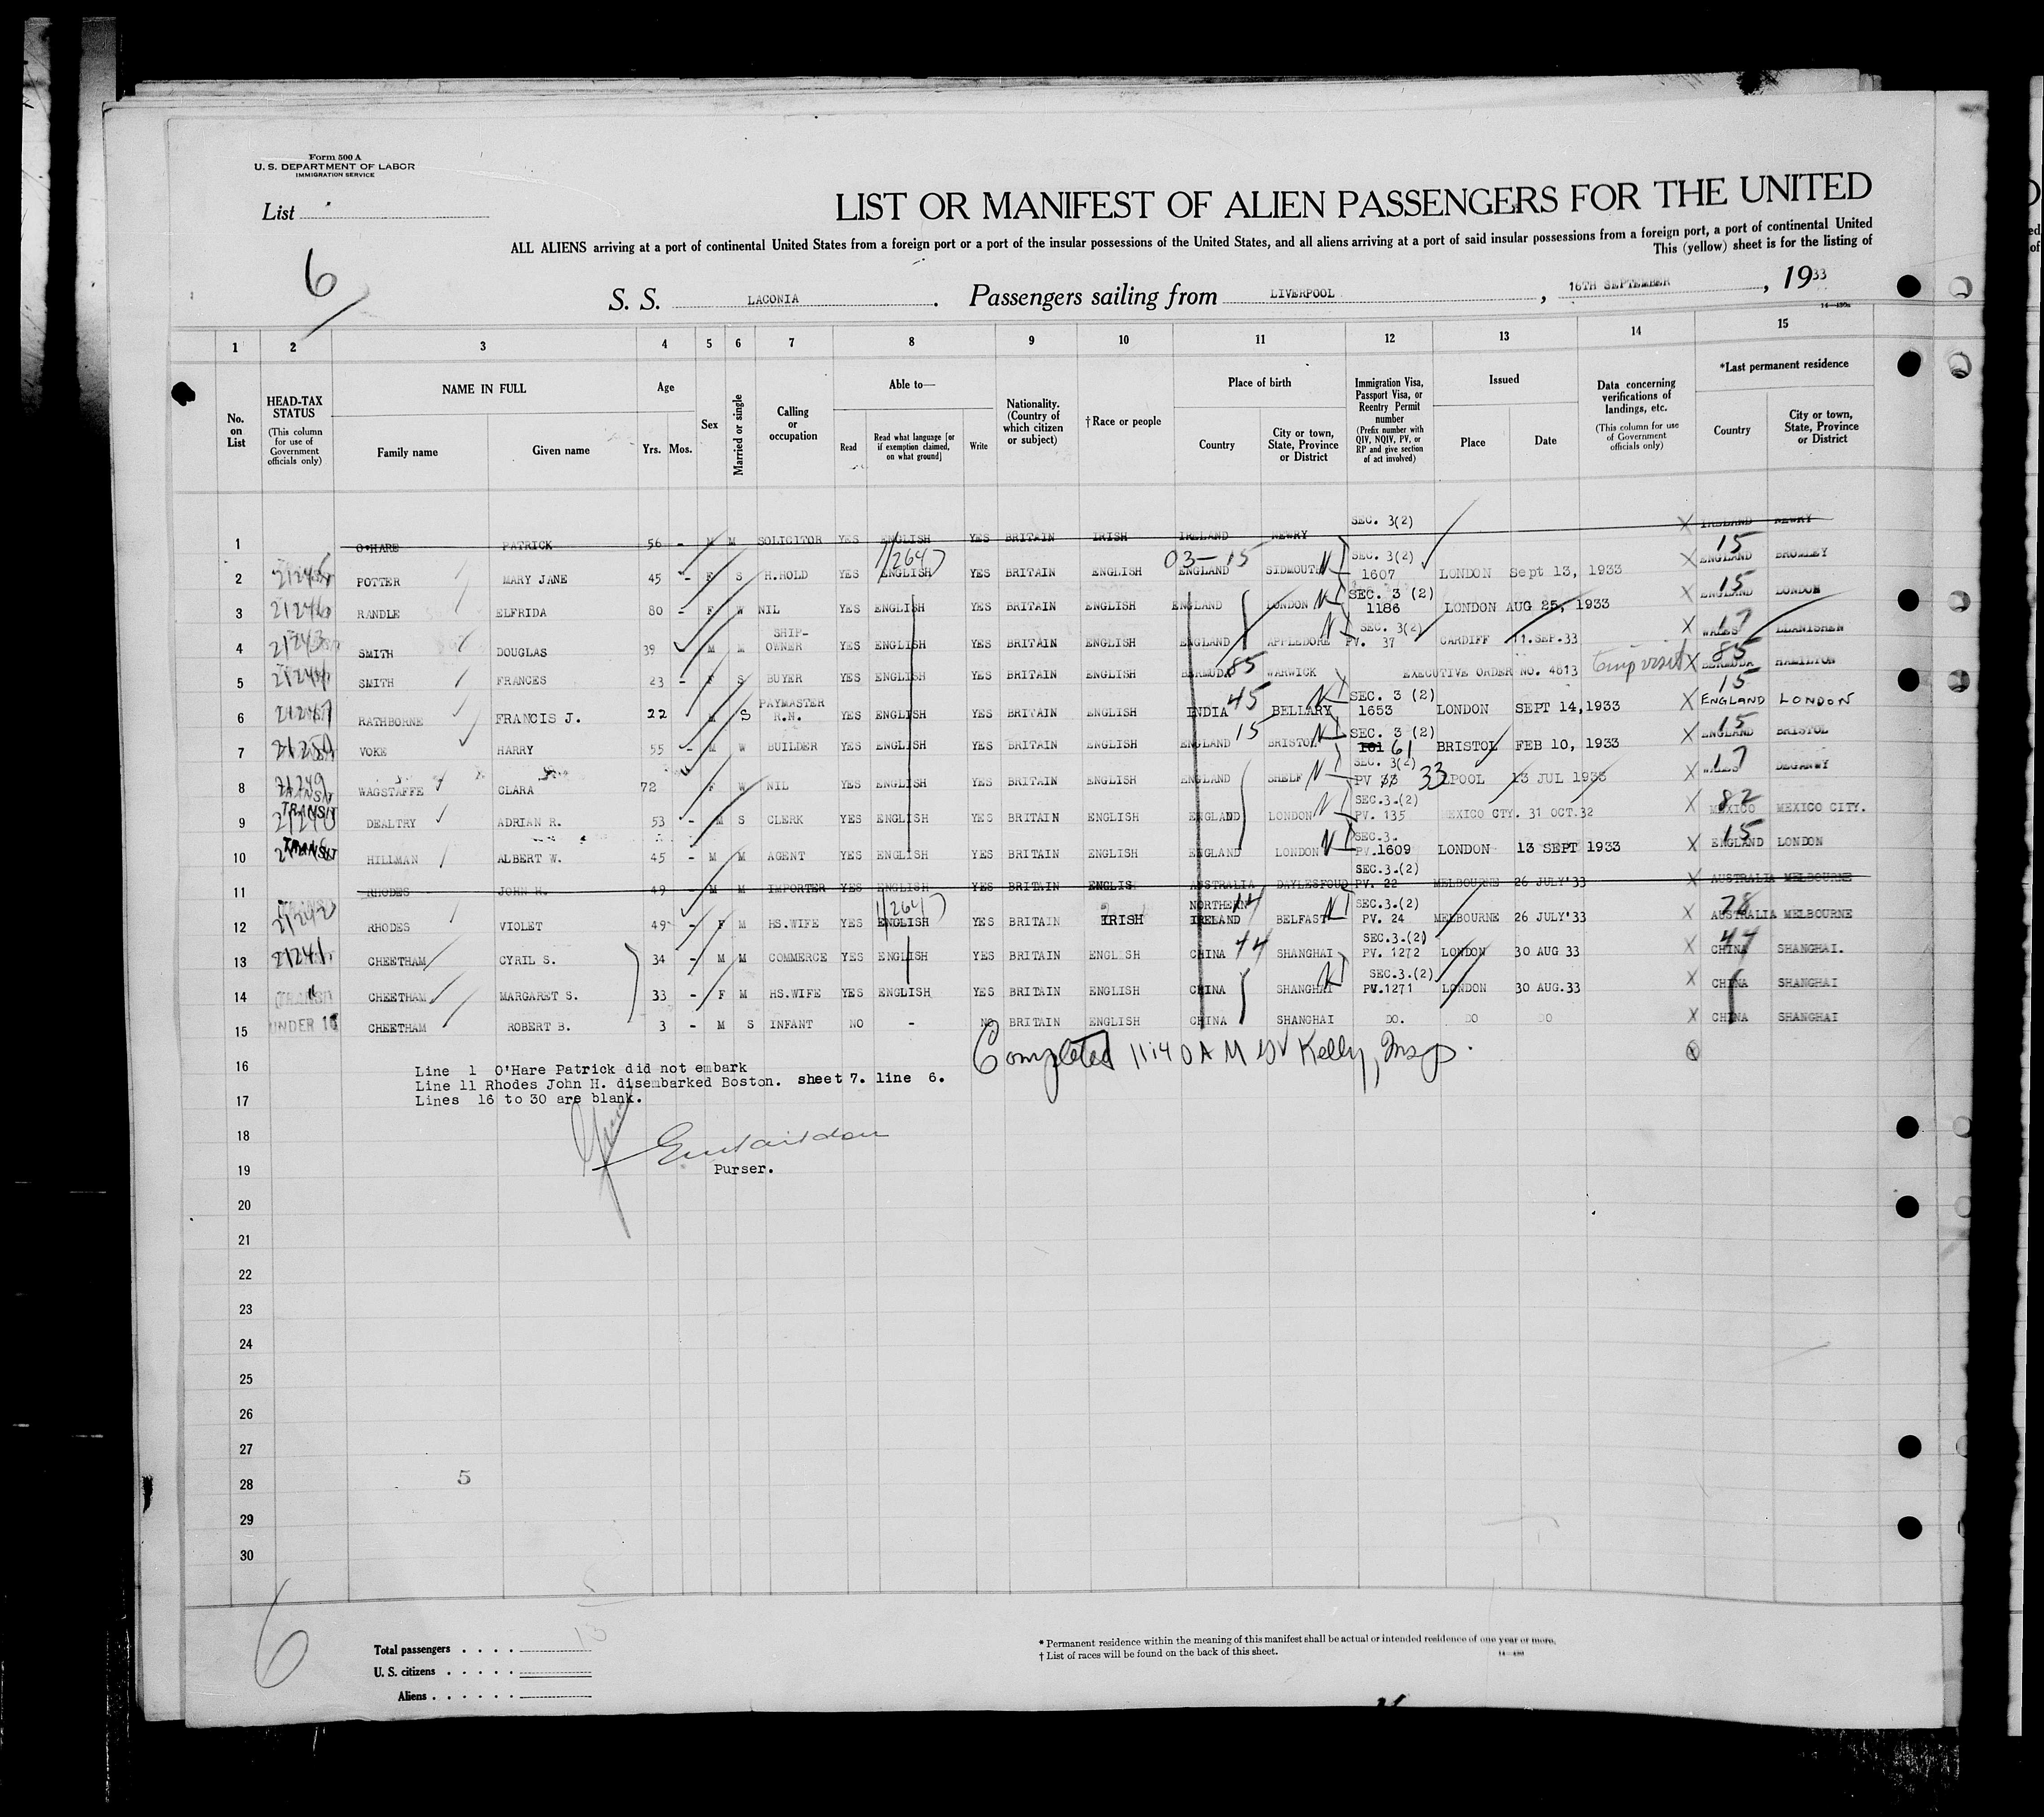 Form 500 A
U. S. DEPARTMENT OF LABOR
IMMIGRATION SERVICE
List
6
LIST OR MANIFEST OF ALIEN PASSENGERS FOR THE UNITED
ALL ALIENS arriving at a port of continental United States from a foreign port or a port of the insular possessions of the United States, and all aliens arriving at a port of said insular possessions from a foreign port, a port of continental United
This (yellow) sheet is for the listing of
S. S. LACONIA. Passengers sailing from LIVERPOOL, 16TH SEPTEMBER, 1933
1 2 3 4 5 6 7 8 9 10 11 12 13 14 15
No. on List
HEAD-TAX STATUS (This column for use of Government officials only)
NAME IN FULL
Family name Given name
Age
Yrs. Mos.
Sex
Married or single
Calling or occupation
Able to—
Read Read what language [or if exemption claimed, on what ground] Write
Nationality. (Country of which citizen or subject)
† Race or people
Place of birth
Country City or town, State, Province or District
Immigration Visa, Passport Visa, or Reentry Permit number (Prefix number with QIV, NQIV, PV, or RP and give section of act involved)
Issued
Place Date
Data concerning verifications of landings, etc. (This column for use of Government officials only)
*Last permanent residence
Country City or town, State, Province or District
1 O'HARE PATRICK 56 - M M SOLICITOR YES ENGLISH YES BRITAIN IRISH IRELAND NEWRY SEC. 3(2) X IRELAND NEWRY
2 POTTER MARY JANE 45 - F S H.HOLD YES ENGLISH YES BRITAIN ENGLISH 03-15 ENGLAND SIDMOUTH SEC. 3(2) 1607 LONDON Sept 13, 1933 X 15 ENGLAND BROMLEY
3 21246 RANDLE ELFRIDA 80 - F W NIL YES ENGLISH YES BRITAIN ENGLISH ENGLAND LONDON SEC. 3 (2) 1186 LONDON AUG 25, 1933 X 15 ENGLAND LONDON
4 21243 SMITH DOUGLAS 39 M M SHIP-OWNER YES ENGLISH YES BRITAIN ENGLISH ENGLAND APPLEDORE SEC. 3(2) PV. 37 CARDIFF 11.SEP.33 X 17 WALES LLANISHEN
5 21244 SMITH FRANCES 23 - F S BUYER YES ENGLISH YES BRITAIN ENGLISH BERMUDA 85 WARWICK EXECUTIVE ORDER NO. 4813 temp visit X 85 BERMUDA HAMILTON
6 21247 RATHBORNE FRANCIS J. 22 M S PAYMASTER R.N. YES ENGLISH YES BRITAIN ENGLISH INDIA 45 BELLARY SEC. 3 (2) 1653 LONDON SEPT 14,1933 X 15 ENGLAND LONDON
7 21250 VOKE HARRY 55 - M W BUILDER YES ENGLISH YES BRITAIN ENGLISH ENGLAND 15 BRISTOL SEC. 3 (2) 61 BRISTOL FEB 10, 1933 X 15 ENGLAND BRISTOL
8 21249 TRANSIT WAGSTAFFE CLARA 72 F W NIL YES ENGLISH YES BRITAIN ENGLISH ENGLAND SHELF SEC. 3(2) PV 33 LPOOL 13 JUL 1933 X 17 WALES DEGANWY
9 TRANSIT DEALTRY ADRIAN R. 53 - M S CLERK YES ENGLISH YES BRITAIN ENGLISH ENGLAND LONDON SEC.3.(2) PV. 135 MEXICO CTY. 31 OCT.32 X 82 MEXICO MEXICO CITY.
10 TRANSIT HILLMAN ALBERT W. 45 - M M AGENT YES ENGLISH YES BRITAIN ENGLISH ENGLAND LONDON SEC.3. PV.1609 LONDON 13 SEPT 1933 X 15 ENGLAND LONDON
11 RHODES JOHN H. 49 - M M IMPORTER YES ENGLISH YES BRITAIN ENGLIS AUSTRALIA DAYLESFOUD SEC.3.(2) PV. 22 MELBOURNE 26 JULY'33 X AUSTRALIA MELBOURNE
12 21242 RHODES VIOLET 49 - F M HS.WIFE YES ENGLISH YES BRITAIN IRISH NORTHERN IRELAND 14 BELFAST SEC.3.(2) PV. 24 MELBOURNE 26 JULY'33 X 78 AUSTRALIA MELBOURNE
13 21241 CHEETHAM CYRIL S. 34 - M M COMMERCE YES ENGLISH YES BRITAIN ENGLISH CHINA 44 SHANGHAI SEC.3.(2) PV. 1272 LONDON 30 AUG 33 X 44 CHINA SHANGHAI.
14 TRANSIT " CHEETHAM MARGARET S. 33 - F M HS.WIFE YES ENGLISH YES BRITAIN ENGLISH CHINA SHANGHAI SEC.3.(2) PV.1271 LONDON 30 AUG.33 X CHINA SHANGHAI
15 UNDER 16 CHEETHAM ROBERT B. 3 - M S INFANT NO - NO BRITAIN ENGLISH CHINA SHANGHAI DO. DO DO X CHINA SHANGHAI
Completed 11:40 AM Kelly, Insp.
16
Line 1 O'Hare Patrick did not embark
Line 11 Rhodes John H. disembarked Boston. sheet 7. line 6.
17
Lines 16 to 30 are blank.
18
19
Purser.
20
21
22
23
24
25
26
27
28
5
29
30
6
Total passengers . . . . 13
U. S. citizens . . . . .
Aliens . . . . . .
* Permanent residence within the meaning of this manifest shall be actual or intended residence of one year or more.
† List of races will be found on the back of this sheet.